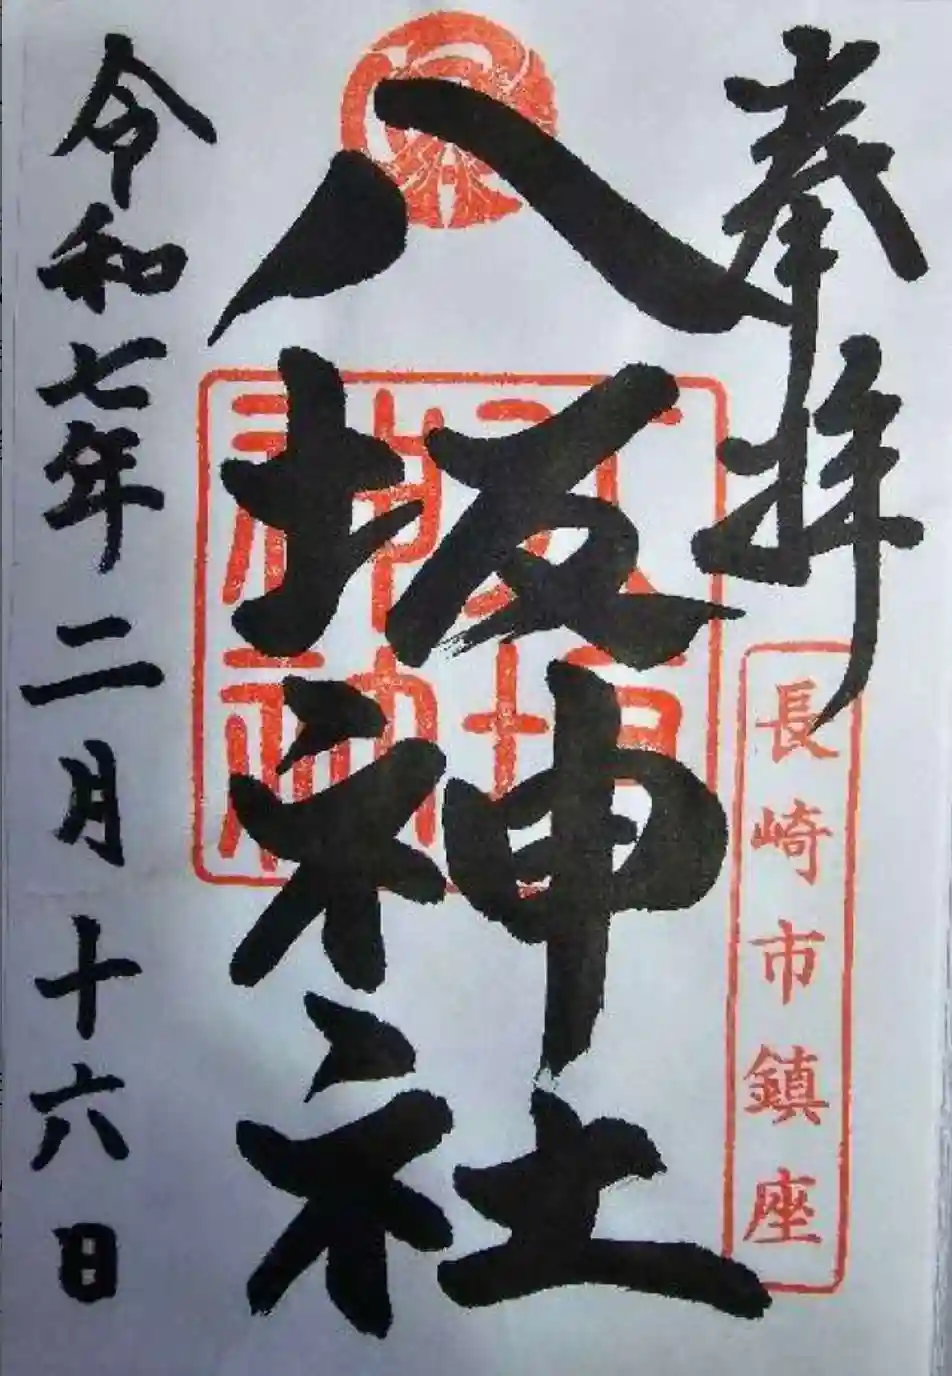 奉拝
長崎市鎮座
八坂神社
八坂神社
令和七年二月十六日